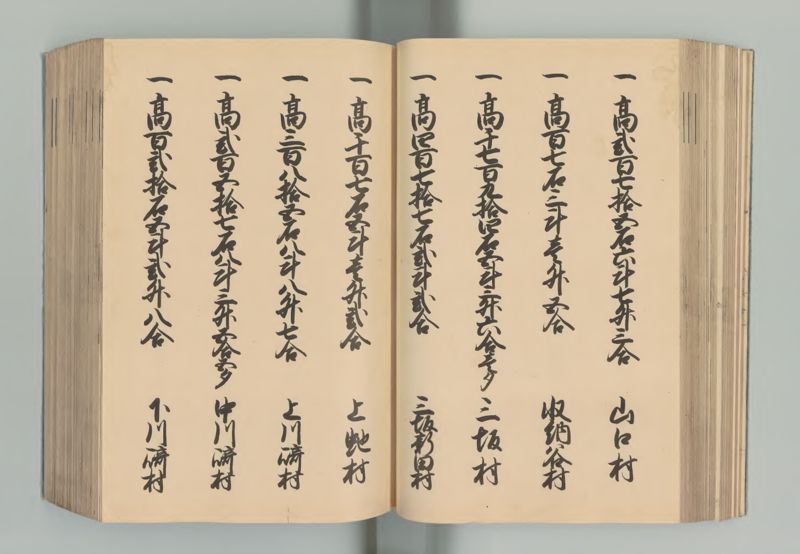 一 高弐百七拾五石六斗七升三合 山口村
一 高百七石三斗壱升五合 収納谷村
一 高千七百九拾四石五斗三升六合壱夕 三坂村
一 高四百七拾七石弐斗弐合 三坂新田村
一 高千百七石五斗壱升弐合 上地村
一 高三百八拾五石八斗八升七合 上川崎村
一 高弐百五拾七石八斗三升五合五夕 中川崎村
一 高百弐拾石五斗弐升八合 下川崎村